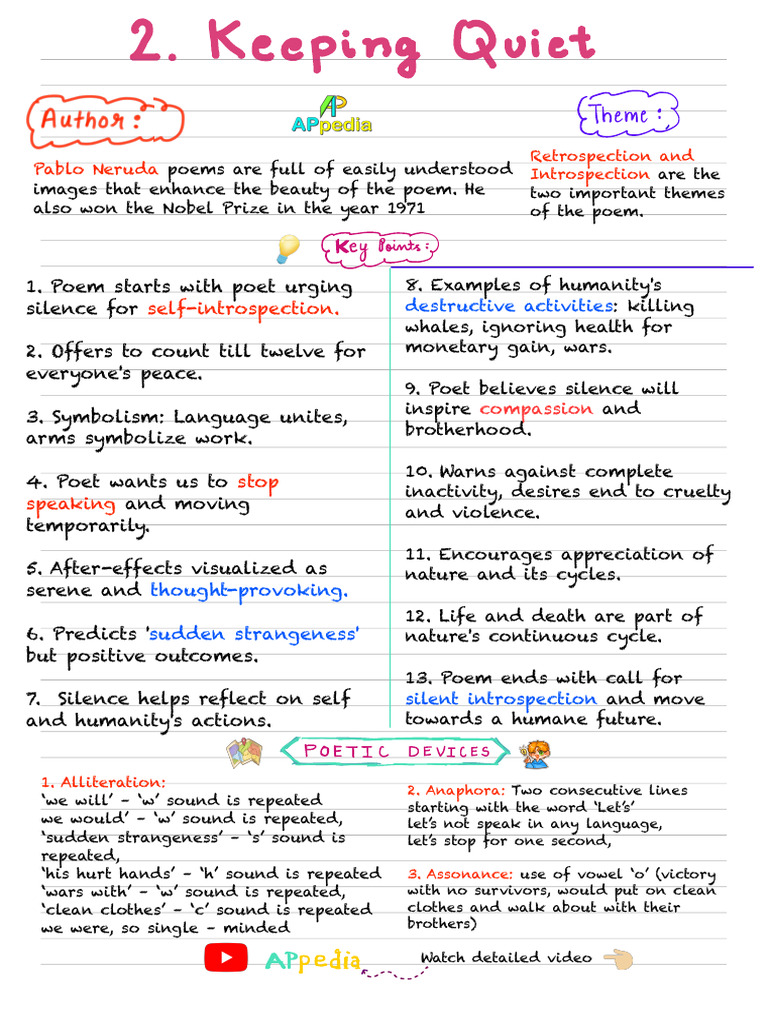 2. Keeping Quiet
Author:
APpedia
Theme:
Pablo Neruda poems are full of easily understood
images that enhance the beauty of the poem. He
also won the Nobel Prize in the year 1971
Retrospection and
Introspection are the
two important themes
of the poem.
Key Points:
1. Poem starts with poet urging
silence for self-introspection.
2. Offers to count till twelve for
everyone's peace.
3. Symbolism: Language unites,
arms symbolize work.
4. Poet wants us to stop
speaking and moving
temporarily.
5. After-effects visualized as
serene and thought-provoking.
6. Predicts 'sudden strangeness'
but positive outcomes.
7. Silence helps reflect on self
and humanity's actions.
8. Examples of humanity's
destructive activities: killing
whales, ignoring health for
monetary gain, wars.
9. Poet believes silence will
inspire compassion and
brotherhood.
10. Warns against complete
inactivity, desires end to cruelty
and violence.
11. Encourages appreciation of
nature and its cycles.
12. Life and death are part of
nature's continuous cycle.
13. Poem ends with call for
silent introspection and move
towards a humane future.
POETIC DEVICES
1. Alliteration:
‘we will’ – ‘w’ sound is repeated
we would’ – ‘w’ sound is repeated,
‘sudden strangeness’ – ‘s’ sound is
repeated,
‘his hurt hands’ – ‘h’ sound is repeated
‘wars with’ – ‘w’ sound is repeated,
‘clean clothes’ – ‘c’ sound is repeated
we were, so single – minded
2. Anaphora: Two consecutive lines
starting with the word ‘Let’s’
let’s not speak in any language,
let’s stop for one second,
3. Assonance: use of vowel ‘o’ (victory
with no survivors, would put on clean
clothes and walk about with their
brothers)
APpedia
Watch detailed video